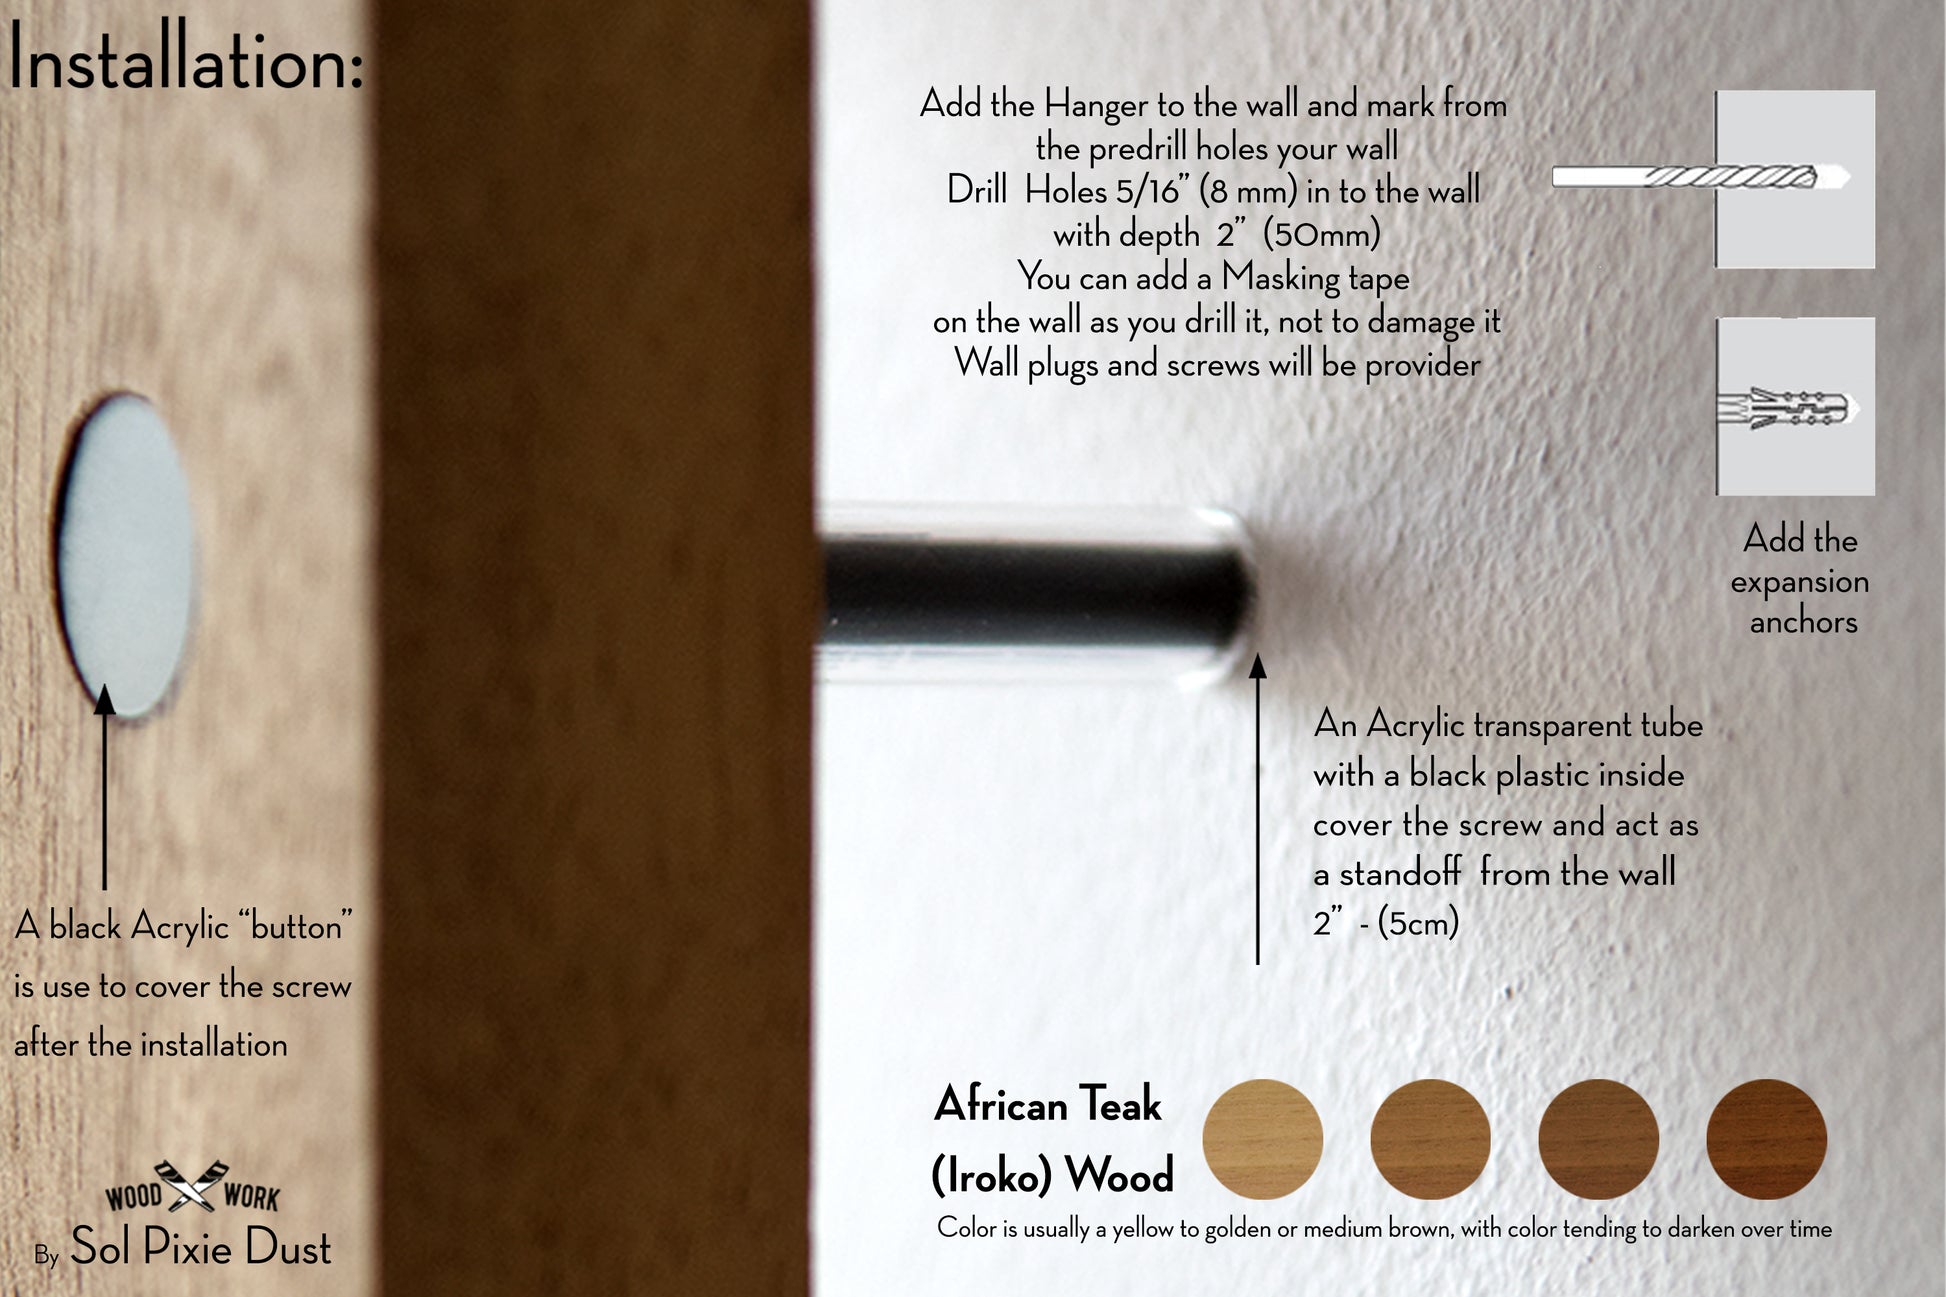 Installation:
Add the Hanger to the wall and mark from
the predrill holes your wall
Drill Holes 5/16” (8 mm) in to the wall
with depth 2” (50mm)
You can add a Masking tape
on the wall as you drill it, not to damage it
Wall plugs and screws will be provider
Add the
expansion
anchors
An Acrylic transparent tube
with a black plastic inside
cover the screw and act as
a standoff from the wall
2” - (5cm)
A black Acrylic “button”
is use to cover the screw
after the installation
African Teak
(Iroko) Wood
Color is usually a yellow to golden or medium brown, with color tending to darken over time
WOOD WORK
By Sol Pixie Dust